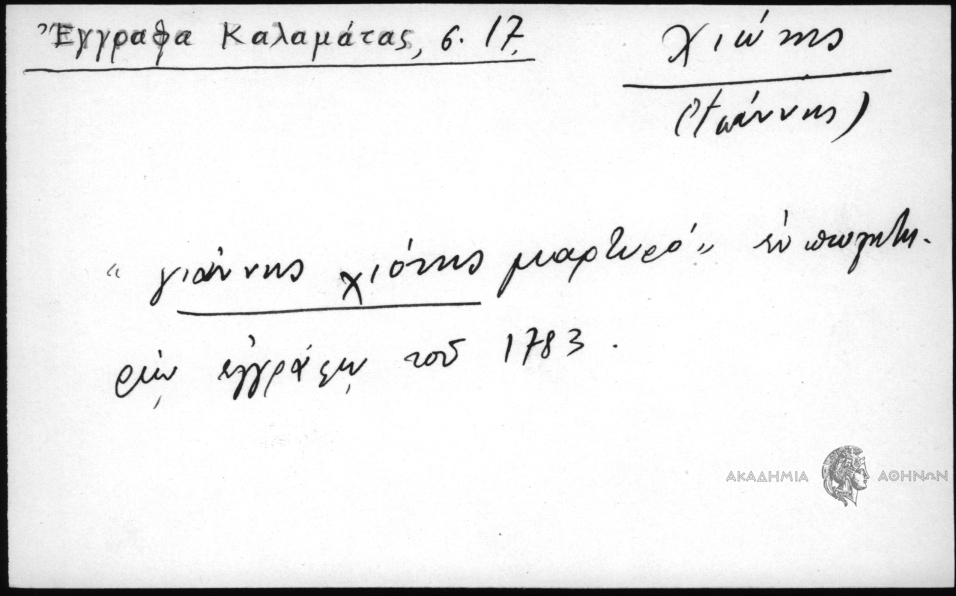 Ἔγγραφα Καλαμάτας, σ. 17.
Χιώτης
(Ἰωάννης)
“ γιάννης χιότης μαρτυρό” ἐν πωλητη-
ρίῳ ἐγγράφῳ τοῦ 1783.
ΑΚΑΔΗΜΙΑ ΑΘΗΝΩΝ